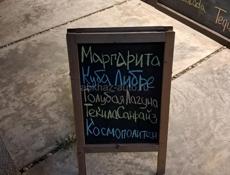 Tequ
Маргарита
Куба Либре
Голубая Лагуна
Текила Санрайз
Космополитен